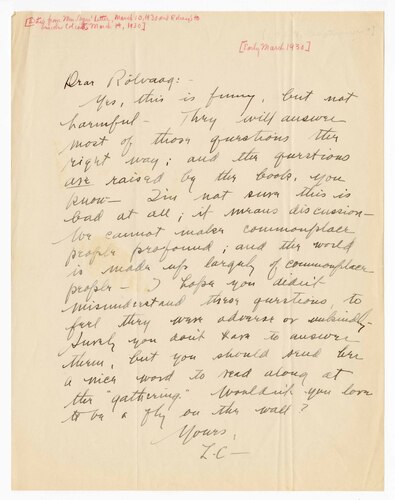 [Early March 1930]
Dear Rölvaag:-
Yes, this is funny, but not
harmful - They will answer
most of those questions the
right way; and the questions
are raised by the book, you
know - I'm not sure this is
bad at all; it means discussion -
We cannot make commonplace
people profound; and the world
is made up largely of commonplace
people - I hope you didn't
misunderstand these questions, to
feel they were adverse or unkindly.
Surely you don't have to answer
them, but you should send her
a nice word to read along at
the "gathering." Wouldn't you love
to be a fly on the wall?
Yours,
L C -